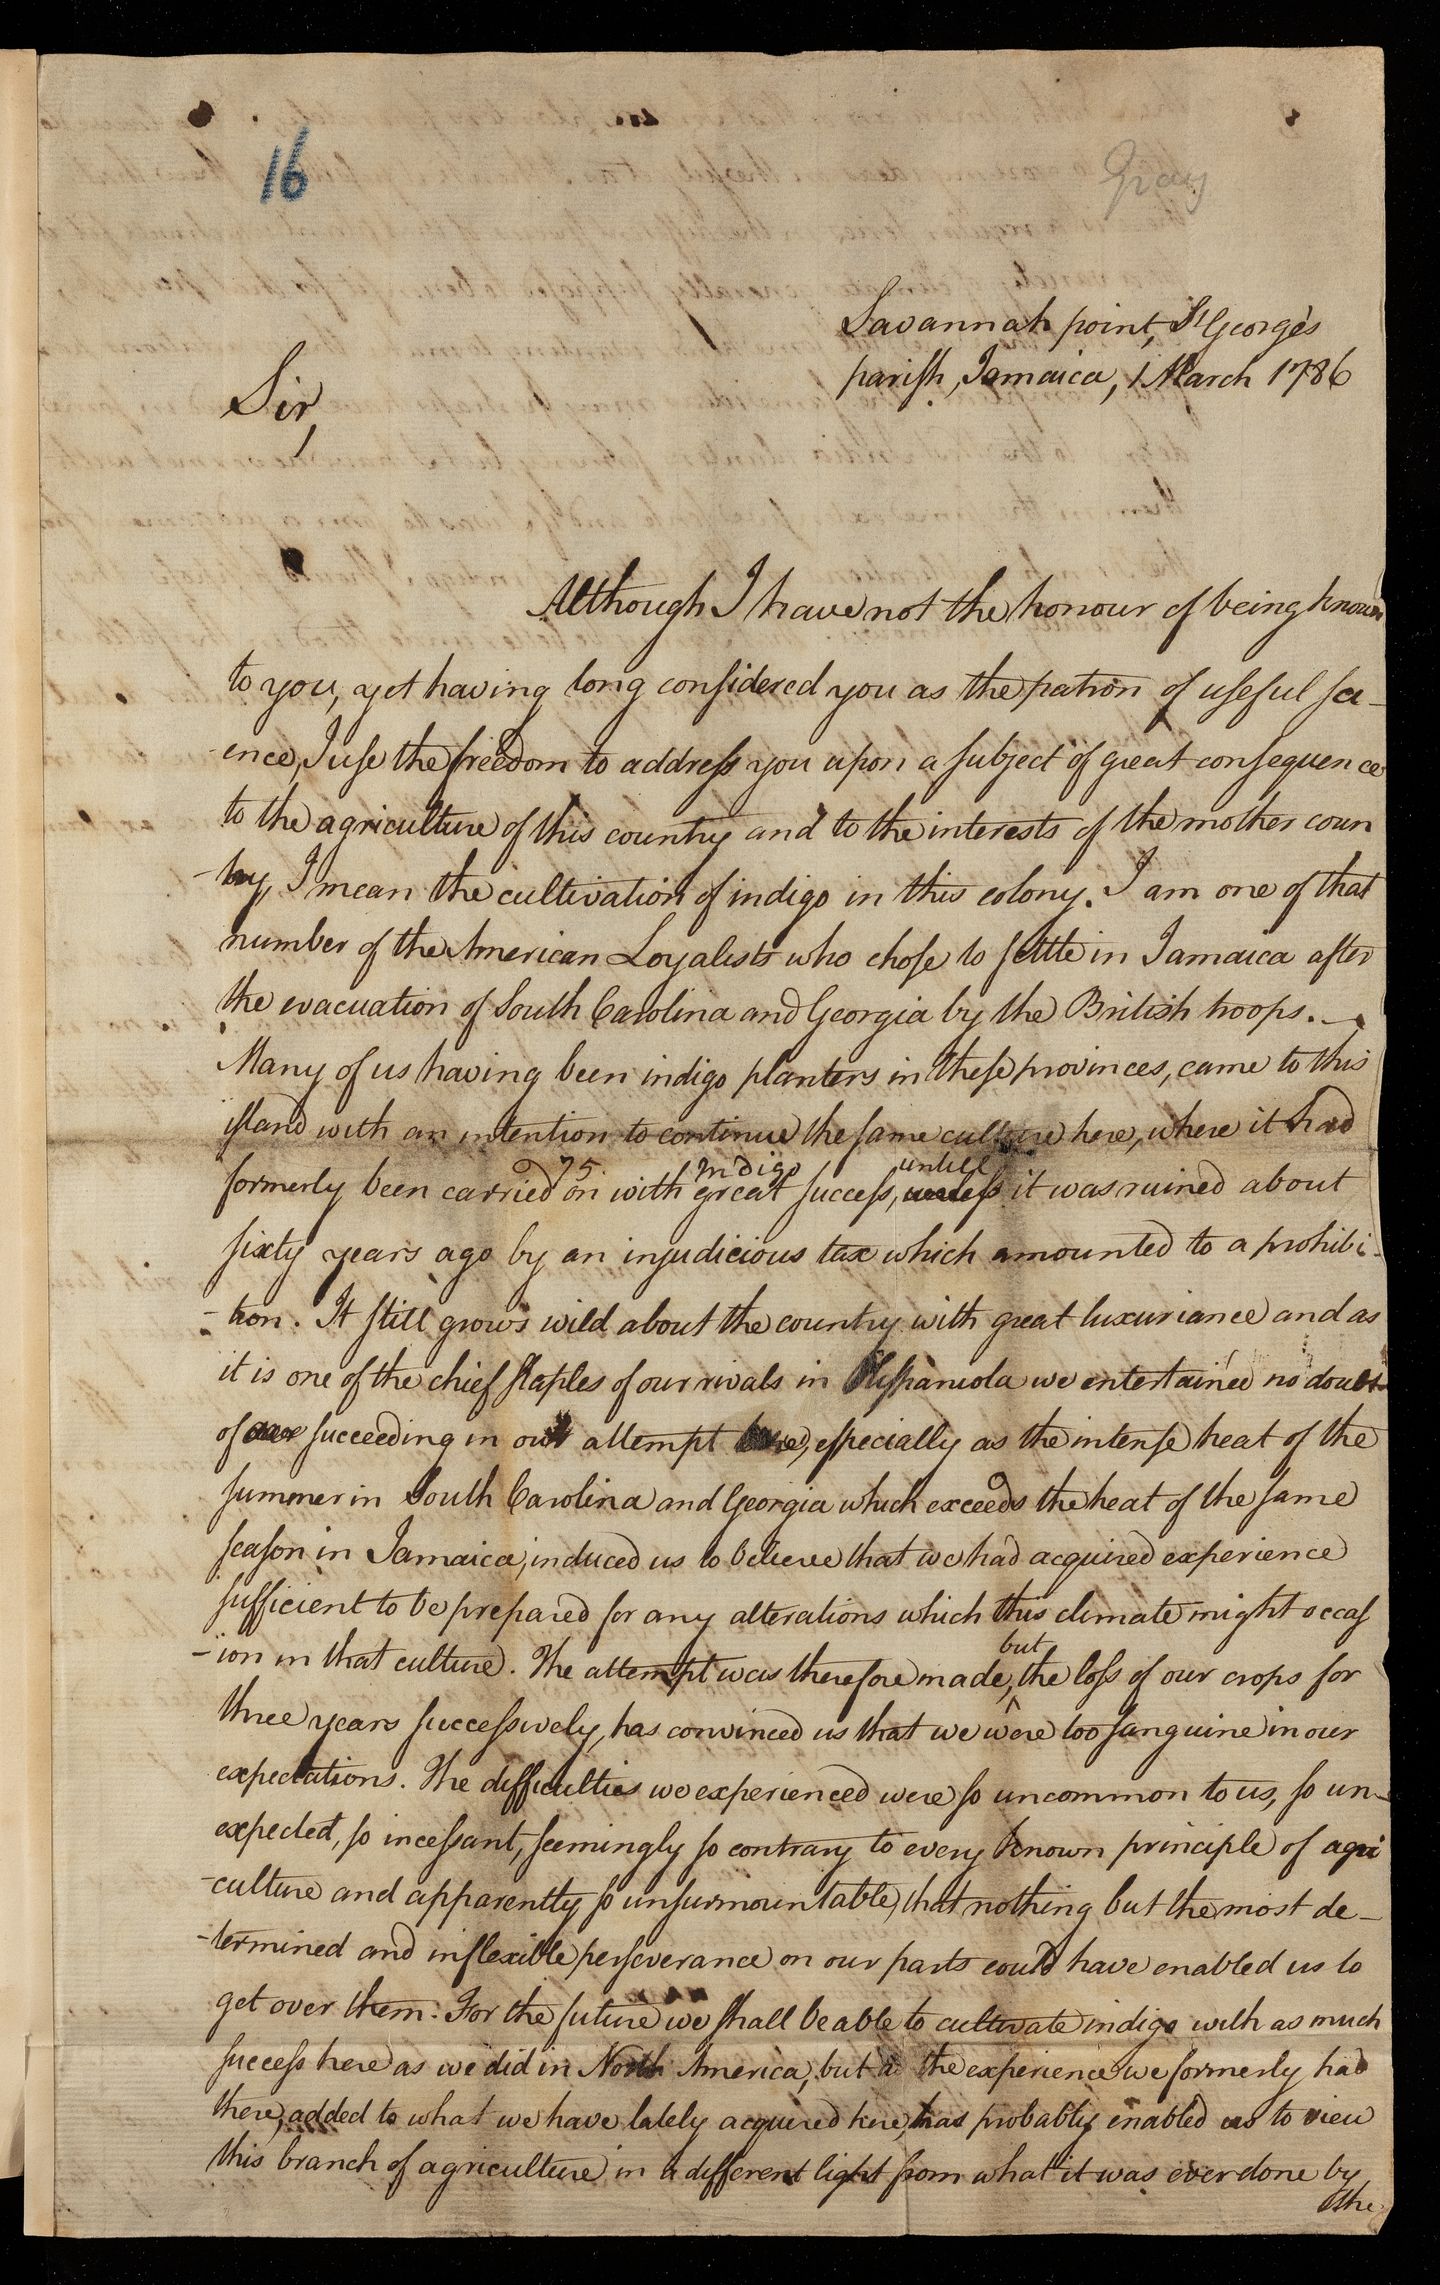 16
Gray
Savannah point, St Georges
parish, Jamaica, 1 March 1786
Sir,
Although I have not the honour of being known
to you, yet having long considered you as the patron of useful sci-
-ence, I use the freedom to address you upon a subject of great consequence
to the agriculture of this country and to the interests of the mother coun
-try, I mean the cultivation of indigo in this colony. I am one of that
number of the American Loyalists who chose to settle in Jamaica after
the evacuation of South Carolina and Georgia by the British troops.
Many of us having been indigo planters in these provinces, came to this
island with an intention to continue the same culture here, where it had
75 Indigo untill
formerly been carried on with great success, it was ruined about
sixty years ago by an injudicious tax which amounted to a prohibi-
-tion. It still grows wild about the country with great luxuriance and as
it is one of the chief staples of our rivals in Hispaniola we entertained no doubt
of our succeeding in our attempt here, especially as the intense heat of the
summer in South Carolina and Georgia which exceeds the heat of the same
season in Jamaica, induced us to believe that we had acquired experience
sufficient to be prepared for any alterations which this climate might occas
-ion in that culture. The attempt was therefore made, but the loss of our crops for
three years successively, has convinced us that we were too sanguine in our
expectations. The difficulties we experienced were so uncommon to us, so un-
expected, so incessant, seemingly so contrary to every known principle of agri
-culture and apparently so unsurmountable, that nothing but the most de-
-termined and inflexible perseverance on our parts could have enabled us to
get over them. For the future we shall be able to cultivate indigo with as much
success here as we did in North America, but the experience we formerly had
there, added to what we have lately acquired here, has probably enabled us to view
this branch of agriculture in a different light from what it was ever done by
the